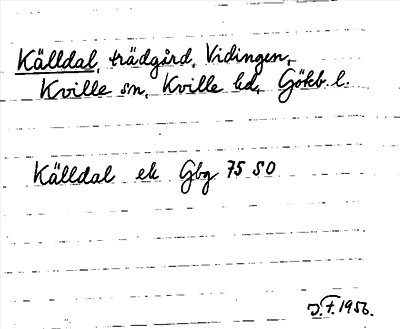 Källdal, trädgård, Vidingen,
Kville sn, Kville hd, Götkb. l.
Källdal ek Gbg 75 SO
J.F. 1956.